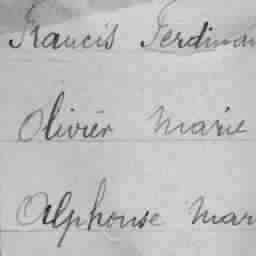 Francis Ferdinan
Olivier Marie
Alphonse Mar